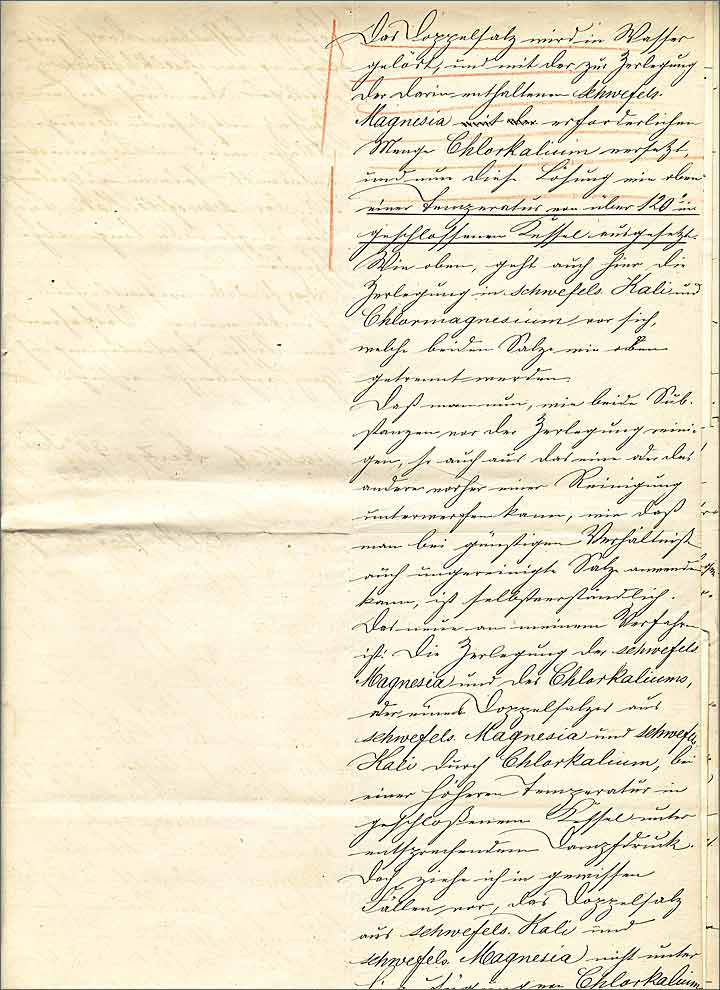 Das Doppelsalz wird in Wasser
gelöst, und mit der zur Zerlegung
der darin enthaltenen schwefels.
Magnesia mit der erforderlichen
Menge Chlorkalium versetzt,
und nun diese Lösung wie oben
einer Temperatur von über 120° in
geschlossenen Kessel ausgesetzt.
Wie oben, geht auch hier die
Zerlegung in schwefels. Kali und
Chlormagnesium vor sich,
welche beiden Salze wie oben
getrennt werden.
Daß man nun, wie beide Sub-
stanzen vor der Zerlegung reini-
gen, so auch das eine oder das
andere vorher einer Reinigung
unterwerfen kann, wie daß
man bei günstigen Verhältniß
auch ungereinigte Salze anwenden
kann, ist selbstverständlich.
Das neue an meinem Verfahren
ist: Die Zerlegung der schwefels
Magnesia und des Chlorkaliums,
oder eines Doppelsalzes aus
schwefels. Magnesia und schwefels
Kali durch Chlorkalium, bei
einer höheren Temperatur in
geschloßenem Kessel unter
entsprechendem Dampfdruck.
Doch ziehe ich in gewissen
Fällen vor, das Doppelsalz
aus schwefels. Kali und
schwefels. Magnesia nicht unter
von Chlorkalium